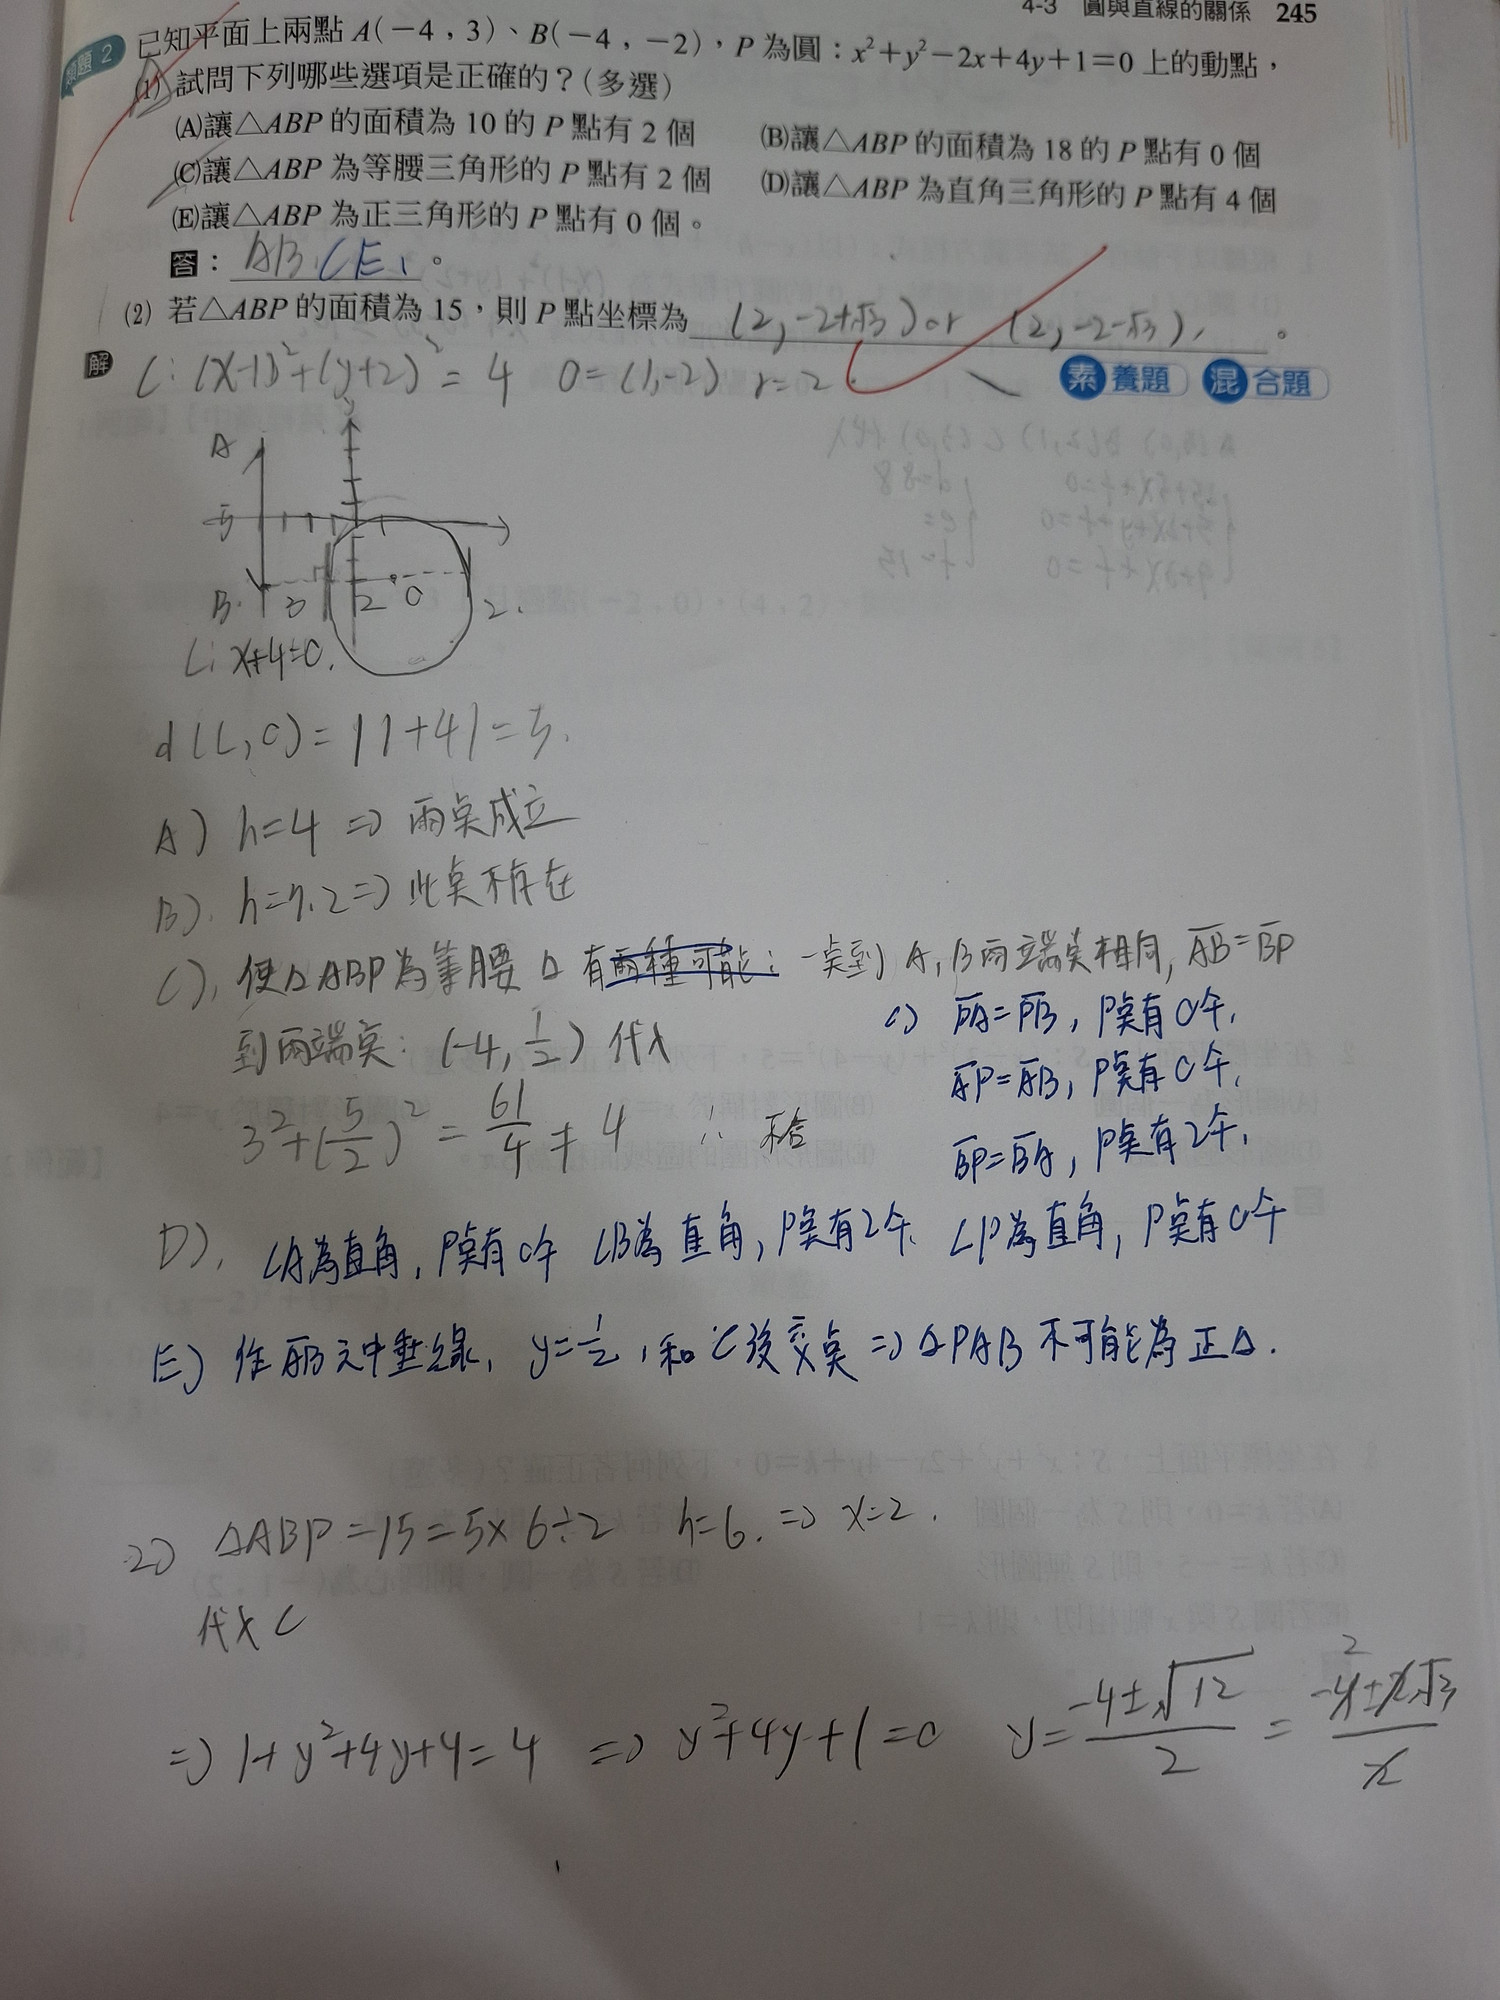 4-3 圓與直線的關係 245
類題 2 已知平面上兩點 A(-4,3)、B(-4,-2),P 為圓:x²+y²-2x+4y+1=0 上的動點,
(1) 試問下列哪些選項是正確的?(多選)
(A)讓△ABP 的面積為 10 的 P 點有 2 個 (B)讓△ABP 的面積為 18 的 P 點有 0 個
(C)讓△ABP 為等腰三角形的 P 點有 2 個 (D)讓△ABP 為直角三角形的 P 點有 4 個
(E)讓△ABP 為正三角形的 P 點有 0 個。
答:AB.CE.。
(2) 若△ABP 的面積為 15,則 P 點坐標為 (2,-2+√3) or (2,-2-√3), 。
解 C:(x-1)²+(y+2)²=4 O=(1,-2) r=2
素養題 混合題
A
5
B. 3 2 O 2.
L:x+4=0.
d(L,C)=|1+4|=5.
A) h=4 => 兩點成立
B). h=7.2 => 此點不存在
C). 使△ABP為等腰△有兩種可能:一點到A,B兩端點相同, AB=BP
到兩端點:(-4,1/2) 代入
C) PA=PB, P點有0个.
AP=AB, P點有0个.
3²+(5/2)²=61/4≠4 ∴不合
BP=BA, P點有2个.
D). ∠A為直角, P點有0个 ∠B為直角, P點有2个. ∠P為直角, P點有0个
E) 作AB之中垂線, y=1/2, 和C沒交點 => △PAB不可能為正△.
2) △ABP=15=5×6÷2 h=6. => x=2.
代入C
=> 1+y²+4y+4=4 => y²+4y+1=0 y=(-4±√12)/2 = (-4±2√3)/2
2